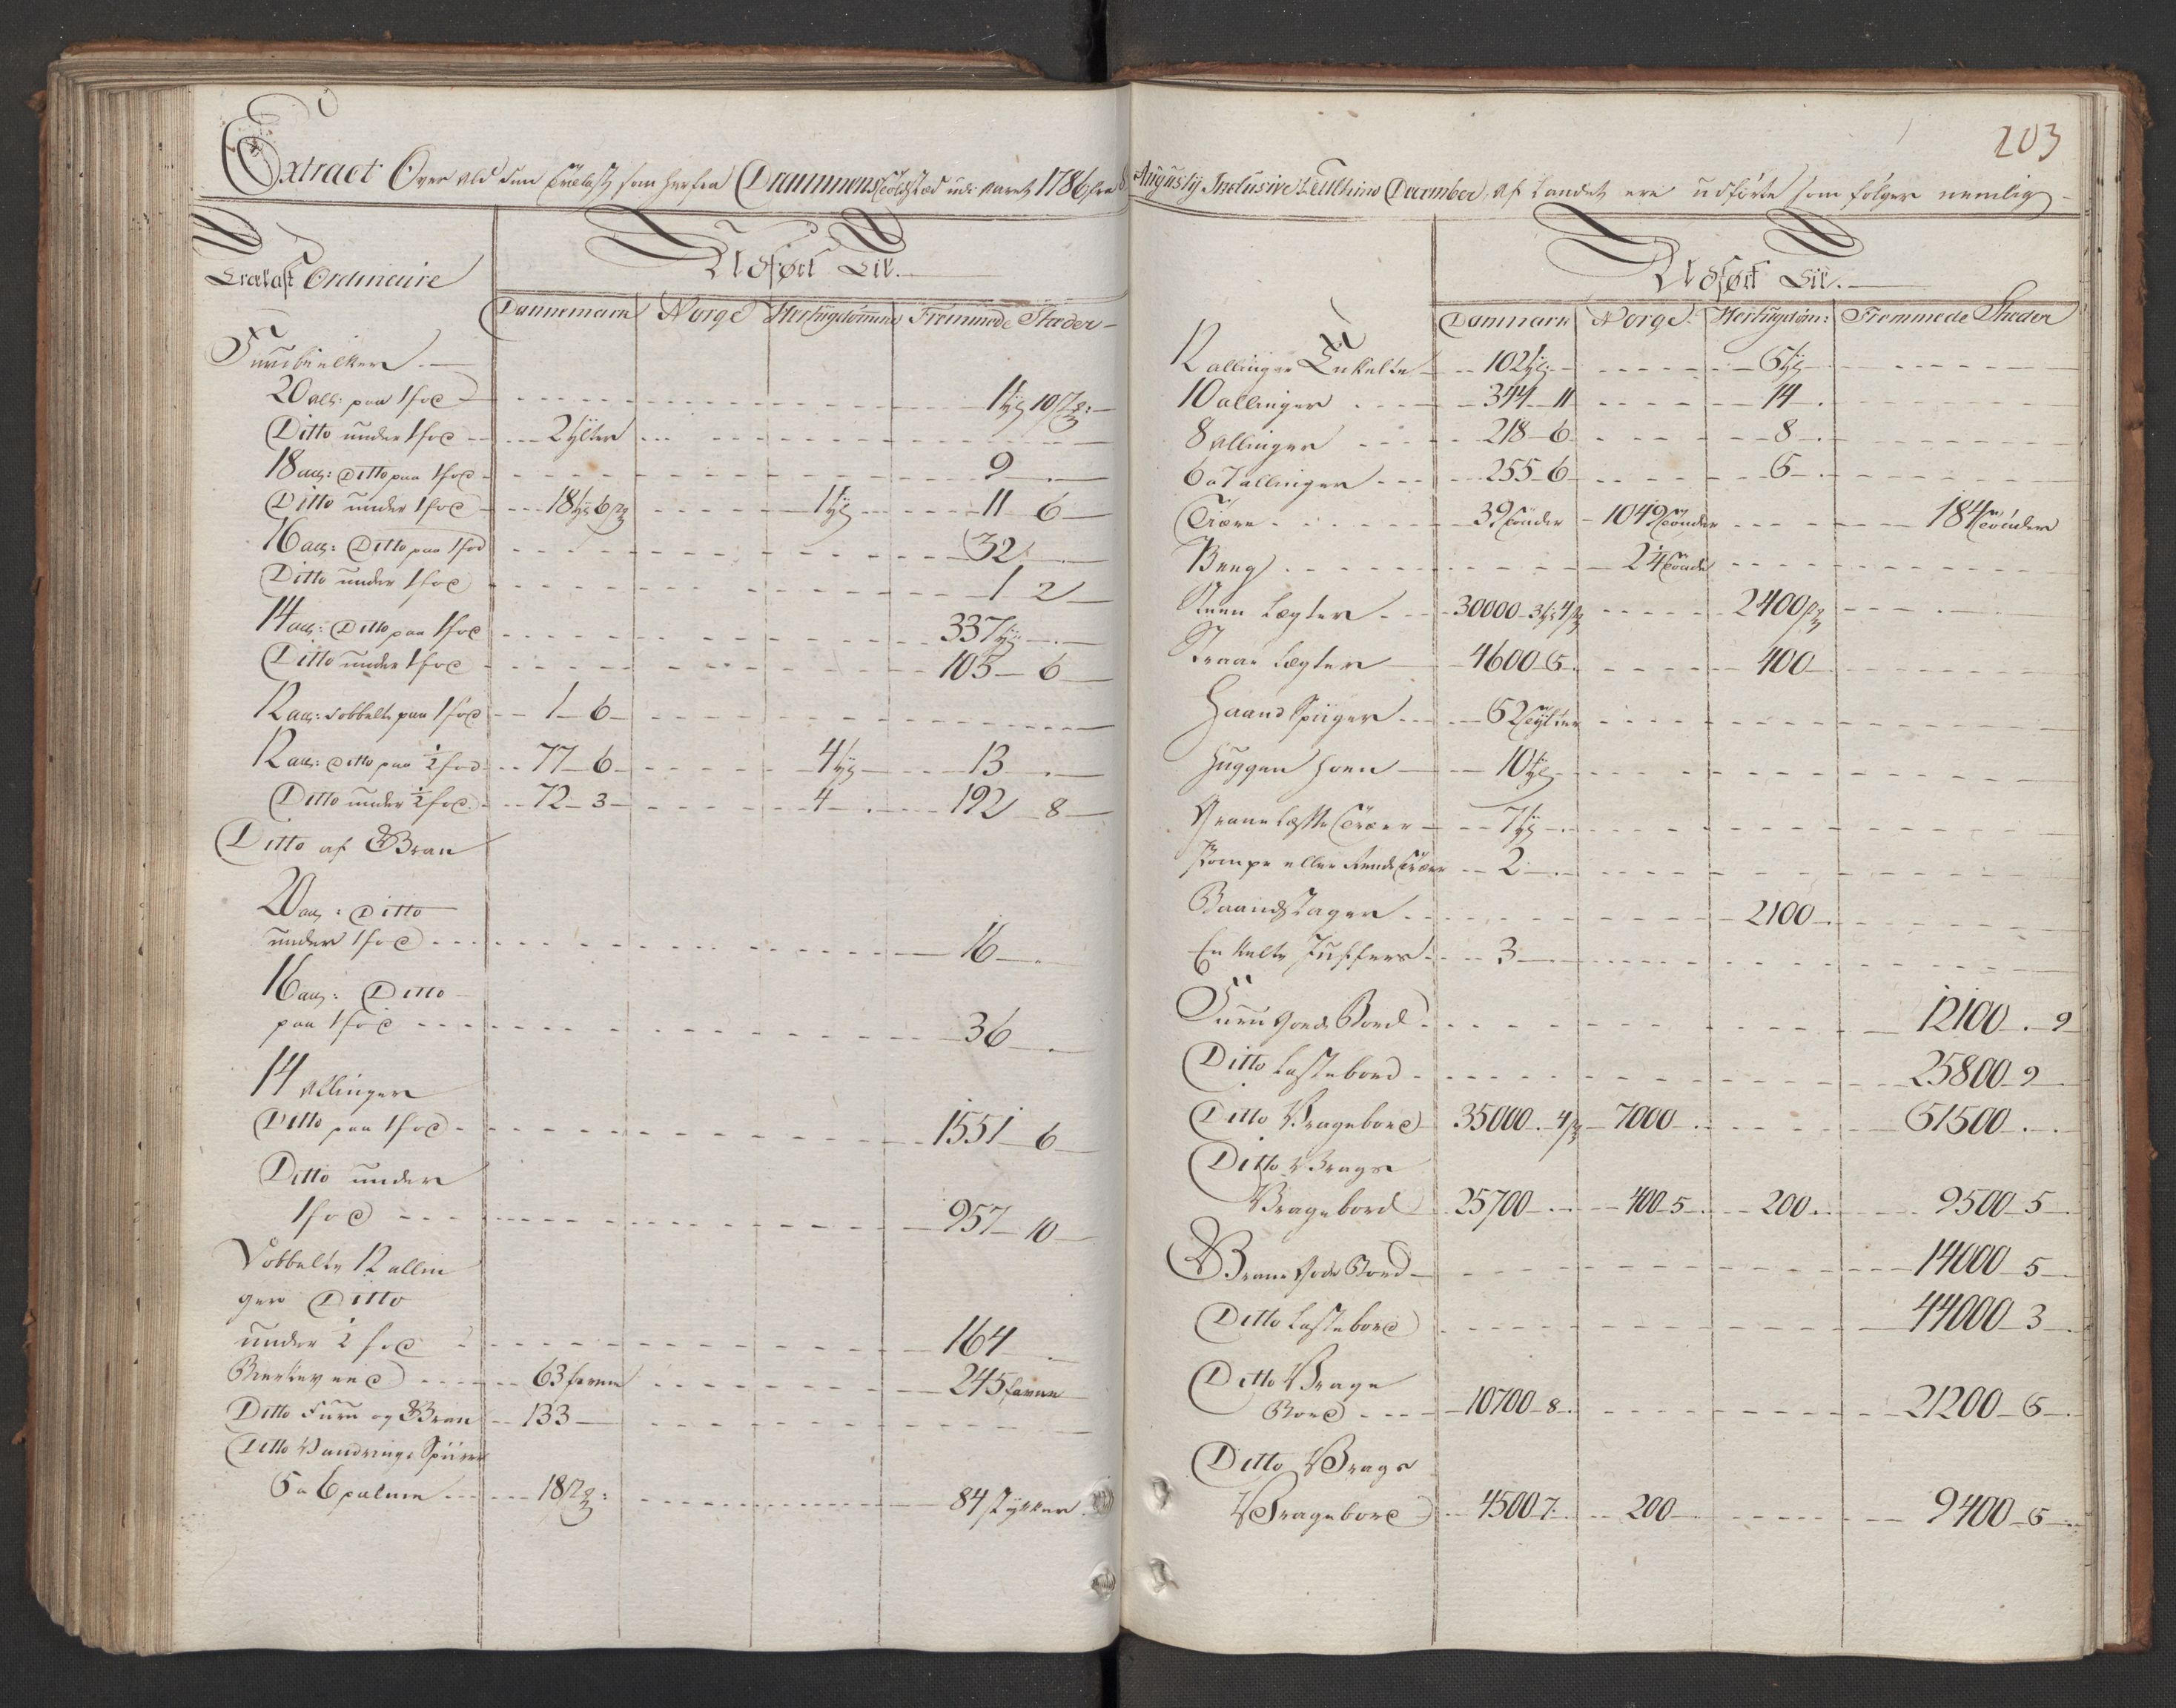 203
Extract Over All den Trælast som herfra Drammens Toldsted udi Aaret 1786 fra 8 Augusty Inclusive til Ultimo December, af Landet ere udførte som følger nemlig
Trælast Ordinaire
Udført Til.
Dannemark Norge Hertugdømmene Fremmede Stæder
Furubielker
20 all: paa 1 fod 1 tyl 10 st:
Ditto under 1 fod 2 tylter
18 all: Ditto paa 1 fod 9
Ditto under 1 fod 18 tyl 6 st 1 tyl 11 6
16 all: Ditto paa 1 fod 32
Ditto under 1 fod 1 2
14 all: Ditto paa 1 fod 337 tyl
Ditto under 1 fod 105 6
12 all: dobbelte paa 1 fod 1 6
12 all: Ditto paa ½ fod 77 6 4 tyl 13
Ditto under ½ fod 72 3 4 192 8
Ditto af Gran
20 all: Ditto
under 1 fod 16
16 all: Ditto
paa 1 fod 36
14 Allinger
Ditto paa 1 fod 1551 6
Ditto under
1 fod 957 10
Dobbelte 12 allin
ger Ditto
under ½ fod 164
Birkeveed 63 favne 245 favne
Ditto Furu og Gran 133
Ditto Spirer
5 a 6 palme 18 st: 84 stykker
Udført Til.
Danmark Norge Hertugdøm: Fremmede Stæder
12 allinger Enkelte 102 tyl 5 tyl
10 allinger 344 11 14
8 Allinger 218 6 8
6 a 7 allinger 255 6 5
Tiære 39 Tønder 1049 Tønder 184 Tønder
Beeg 24 Tønde
Steen Lægter 30000 3 tyl 4 st 2400 st
Straae Lægter 4600 5 400
Haand Spiiger 52 Tylter
Huggen 10 tyl
Grane Læsse Træer 7 tyl
Pompe eller Rende Træer 2
Baandstager 2100
Enkelte Juffers 3
Furu Gode Bord 12100 9
Ditto Lastebord 25800 9
Ditto Vragebord 35000 4 st 7000 51500
Ditto Vrags
Vragebord 25700 400 5 200 9500 5
Grane Gode Bord 14000 5
Ditto Lastebord 44000 3
Ditto Vrage
Bord 10700 8 21200 5
Ditto Vrags
Vragebord 4500 7 200 9400 5